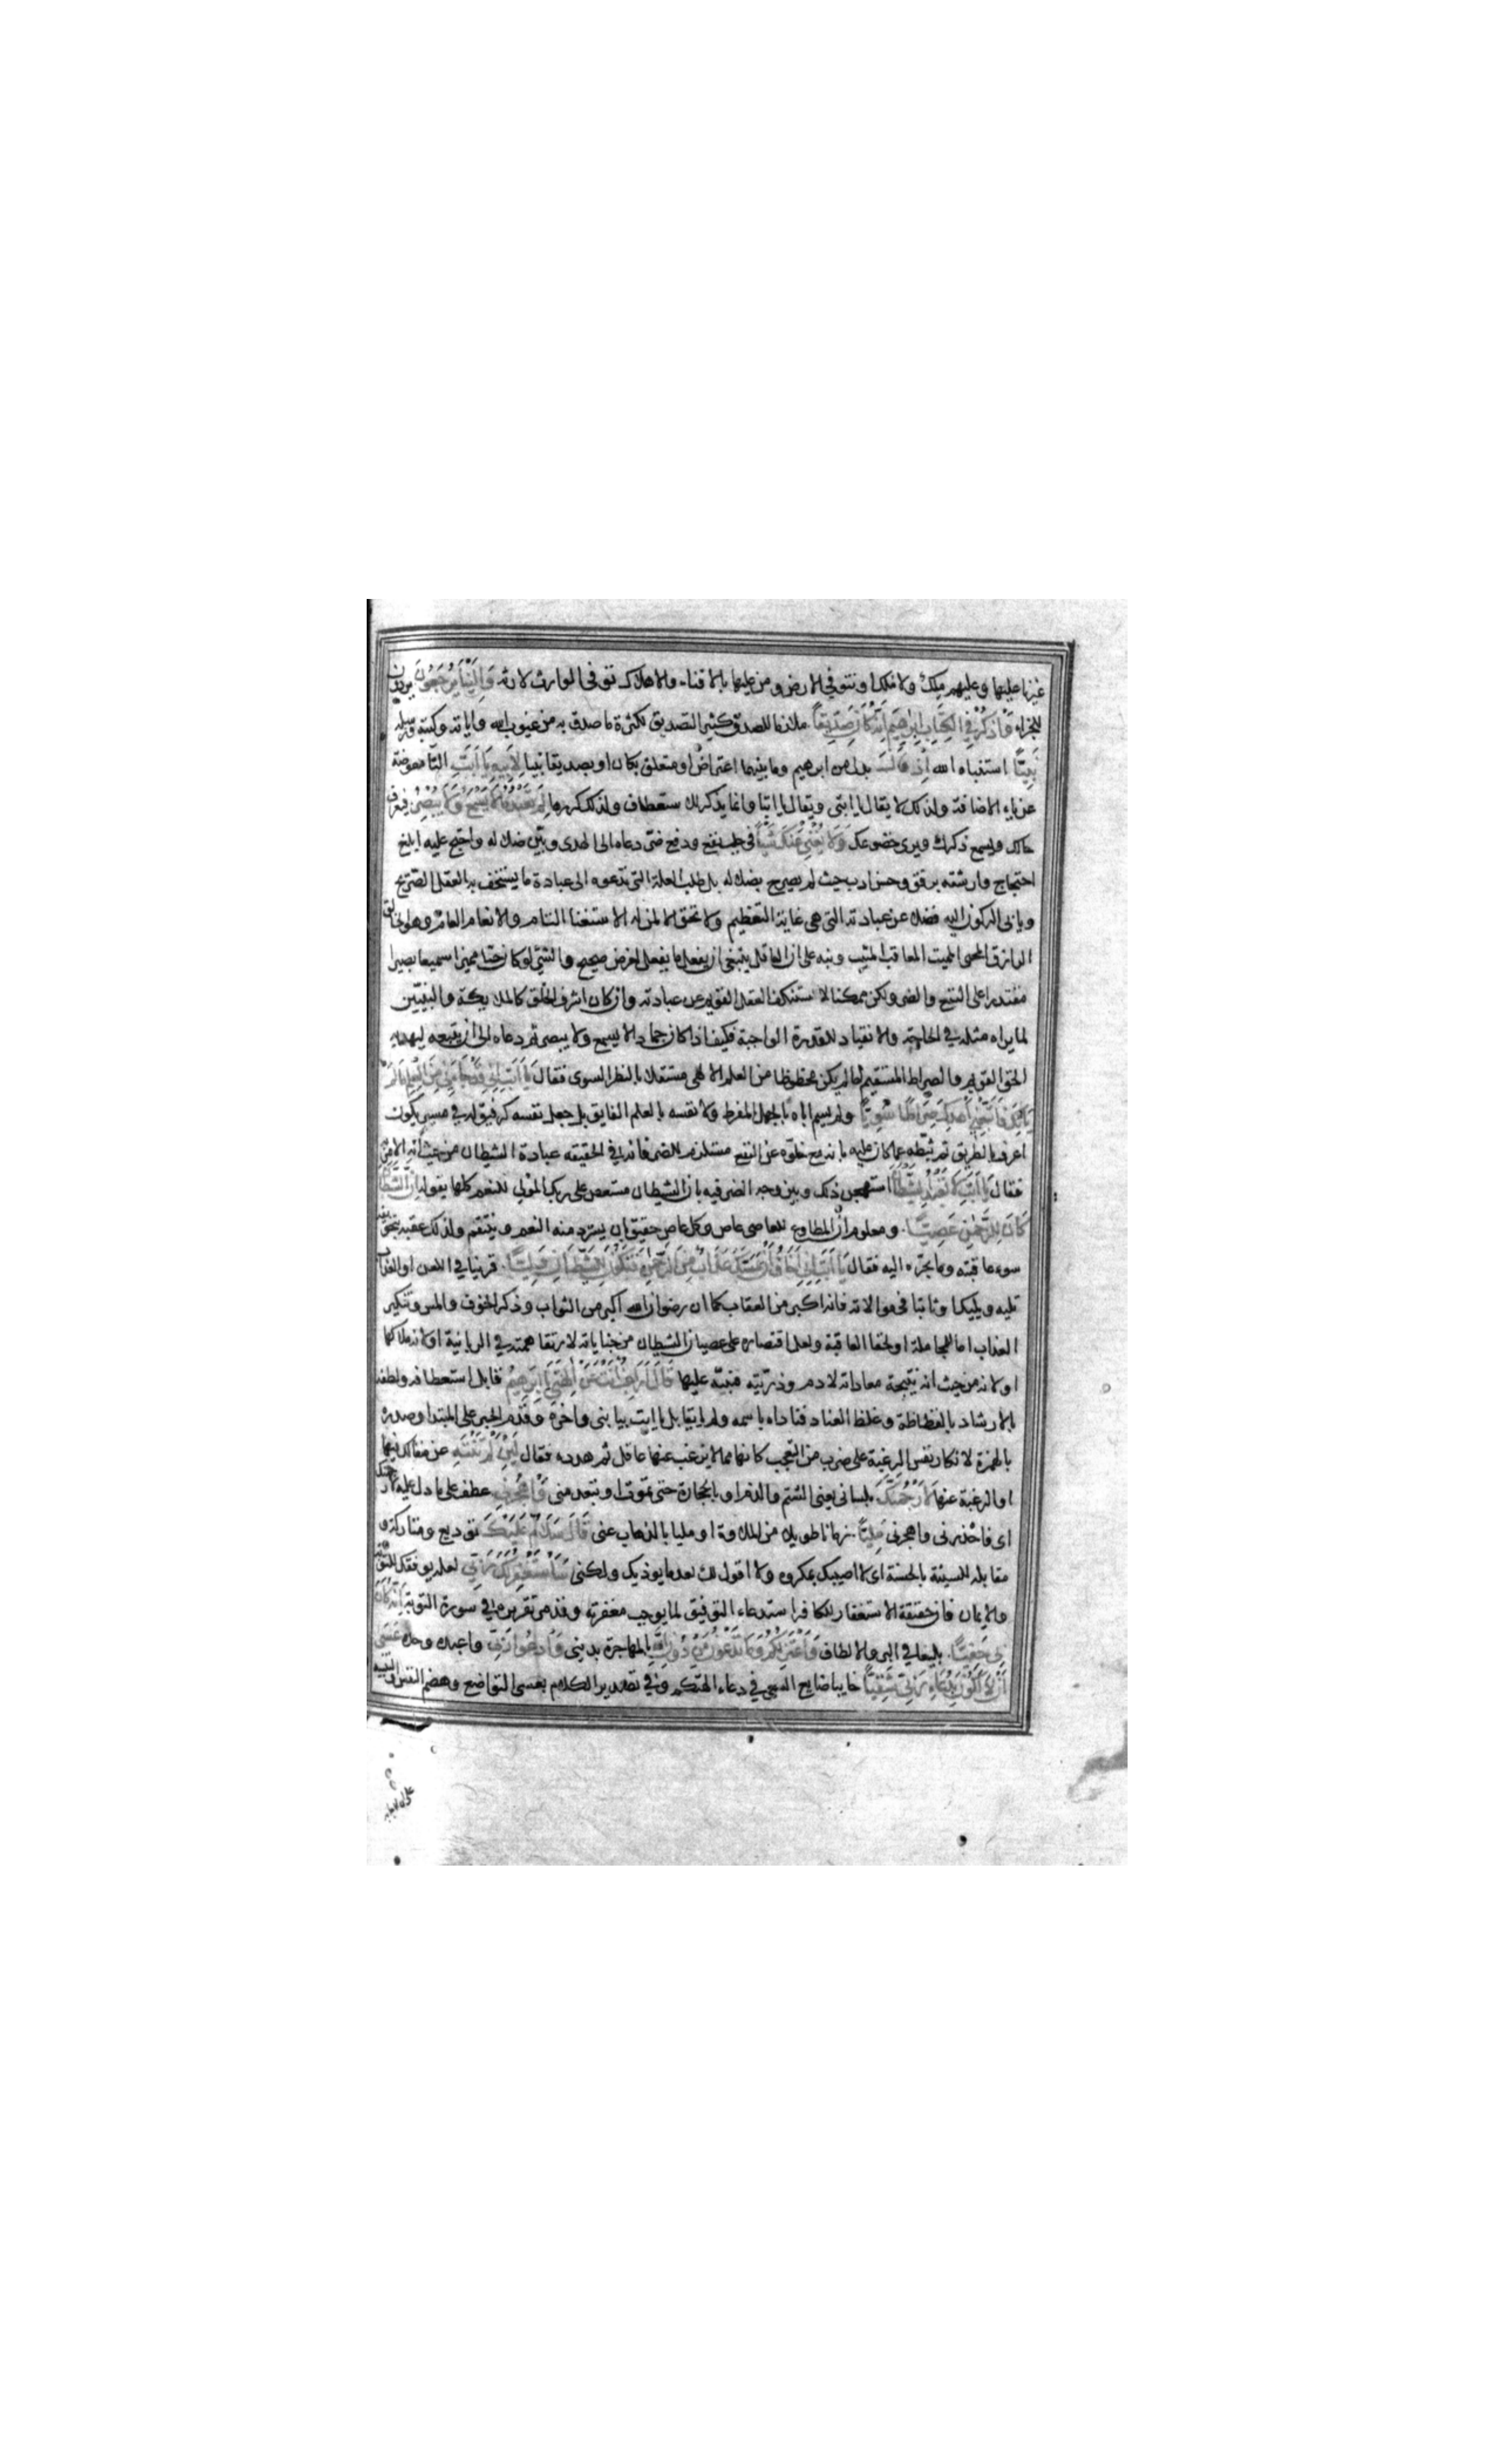 غيرنا عليها وعليهم ملك ولا ملكا او نتوفى الارض ومن عليها بالافناء والاهلاك توفى الوارث لارثه وَاِلَيْنَا يُرْجَعُونَ يردون
للجزاء وَاذْكُرْ فِي الْكِتَابِ اِبْرَاهِيمَ اِنَّهُ كَانَ صِدِّيقًا ملازما للصدق كثير التصديق لكثرة ما صدق به من غيوب الله واياته وكتبه ورسله
نَبِيًّا استنباه الله اِذْ قَالَ بدل من ابرهيم وما بينهما اعتراض او متعلق بكان او بصديقا نبيا لِاَبِيهِ يَا اَبَتِ التا معوضة
عن ياء الاضافة ولذلك لا يقال يا ابتى ويقال يا ابتا وانما يذكر للاستعطاف ولذلك كررها لِمَ تَعْبُدُ مَا لَا يَسْمَعُ وَلَا يُبْصِرُ فيعرف
حالك ويسمع ذكرك ويرى خضوعك وَلَا يُغْنِي عَنْكَ شَيْئًا في جلب نفع ودفع ضر دعاه الى الهدى وبين ضلاله واحتج عليه ابلغ
احتجاج وارشقه برفق وحسن ادب حيث لم يصرح بضلاله بل طلب العلة التى تدعوه الى عبادة ما يستخف به العقل الصريح
ويابى الركون اليه فضلا عن عبادته التى هى غاية التعظيم ولا تحق الا لمن له الاستغنا التام والانعام العام وهو الخالق
الرازق المحيى المميت المعاقب المثيب ونبه على ان العاقل ينبغى ان يفعل ما يفعل لغرض صحيح والشئ لو كان حيا مميزا سميعا بصيرا
مقتدرا على النفع والضر ولكن ممكنا لاستنكف العقل القويم عن عبادته وان كان اشرف الخلق كالملايكة والنبيين
لما يراه مثله في الحاجة والانقياد للقدرة الواجبة فكيف اذا كان جمادا لا يسمع ولا يبصر ثم دعاه الى ان يتبعه ليهديه
الحق القويم والصراط المستقيم لما لم يكن محظوظا من العلم الالهى مستقلا بالنظر السوى فقال يَا اَبَتِ اِنِّي قَدْ جَاءَنِي مِنَ الْعِلْمِ مَا لَمْ
يَأْتِكَ فَاتَّبِعْنِي اَهْدِكَ صِرَاطًا سَوِيًّا ولم يسم اباه بالجهل المفرط ولا نفسه بالعلم الفايق بل جعل نفسه كرفيق له في مسير يكون
اعرف بالطريق ثم ثبطه عما كان عليه بانه مع خلوه عن النفع مستلزم للضر فانه في الحقيقه عبادة الشيطان من حيث انه الامر به
فقال يَا اَبَتِ لَا تَعْبُدِ الشَّيْطَانَ استهجن ذلك وبين وجه الضر فيه بان الشيطان مستعص على ربك المولى للنعم كلها بقوله اِنَّ الشَّيْطَانَ
كَانَ لِلرَّحْمٰنِ عَصِيًّا ومعلوم ان المطاوع للعاصى عاص وكل عاص حقيق بان يسترد منه النعم وينتقم ولذلك عقبه بتخويفه
سوء عاقبته وما يجره اليه فقال يَا اَبَتِ اِنِّي اَخَافُ اَنْ يَمَسَّكَ عَذَابٌ مِنَ الرَّحْمٰنِ فَتَكُونَ لِلشَّيْطَانِ وَلِيًّا قرينا في اللعن او العذاب
تليه ويليك او ثابتا في موالاته فانه اكبر من العقاب كما ان رضوان الله اكبر من الثواب وذكر الخوف والمس وتنكير
العذاب اما للمجاملة او لخفا العاقبة ولعل اقتصاره على عصيان الشيطان من جناياته لارتقا همته في الربانية او لانه ملاكها
او لانه من حيث انه نتيجة معاداته لادم وذريته منبه عليها قَالَ اَرَاغِبٌ اَنْتَ عَنْ اٰلِهَتِي يَا اِبْرٰهِيمُ قابل استعطافه ولطفه
بالارشاد بالفظاظة وغلظ العناد فناداه باسمه ولم يقابل يا ابت بيا بنى واخره وقدم الخبر على المبتدا وصدره
بالهمزة لانكار نفس الرغبة على ضرب من التعجب كانها مما لا يرغب عنها عاقل ثم هدده فقال لَئِنْ لَمْ تَنْتَهِ عن مقالك فيها
او الرغبة عنها لَاَرْجُمَنَّكَ بلسانى يعنى الشتم والذم او بالحجارة حتى تموت او تبعد منى وَاهْجُرْنِي عطف على ما دل عليه لارجمنك
اى فاحذرنى واهجرنى مَلِيًّا زمانا طويلا من الملاوة او مليا بالذهاب عنى قَالَ سَلَامٌ عَلَيْكَ توديع ومتاركة و
مقابلة للسيئة بالحسنة اى لا اصيبك بمكروه ولا اقول لك بعد ما يوذيك ولكنى سَاَسْتَغْفِرُ لَكَ رَبِّي لعله يوفقك للتوبة
والايمان فان حقيقة الاستغفار للكافر استدعاء التوفيق لما يوجب مغفرته وقد مر تقريره في سورة التوبة اِنَّهُ كَانَ
بِي حَفِيًّا بليغا في البر والالطاف وَاَعْتَزِلُكُمْ وَمَا تَدْعُونَ مِنْ دُونِ اللّٰهِ بالمهاجرة بدينى وَاَدْعُوا رَبِّي واعبده وحده عَسٰى
اَنْ لَا اَكُونَ بِدُعَاءِ رَبِّي شَقِيًّا خايبا ضايع السعى في دعاء الهتكم وفي تصدير الكلام بعسى التواضع وهضم النفس والتنبيه